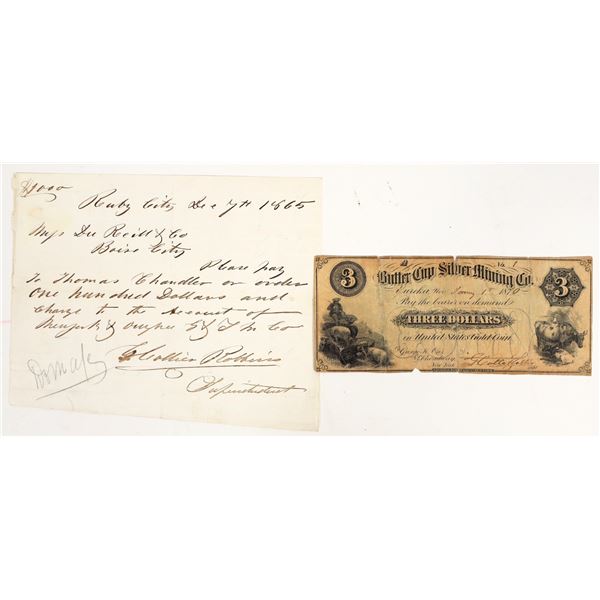 $1000
Ruby City Dec 7th 1865
Mess Du Reill & Co
Boise City
Please pay
To Thomas Chandler or order
One hundred Dollars and
Charge to the account of
New York & G & S M Co
G Collier Robbins
Superintendent
A No 1
Butter Cup Silver Mining Co.
Eureka, Nev. 1st 1870
Pay the bearer on demand
THREE DOLLARS
in United States Gold Coin
New York
3
3